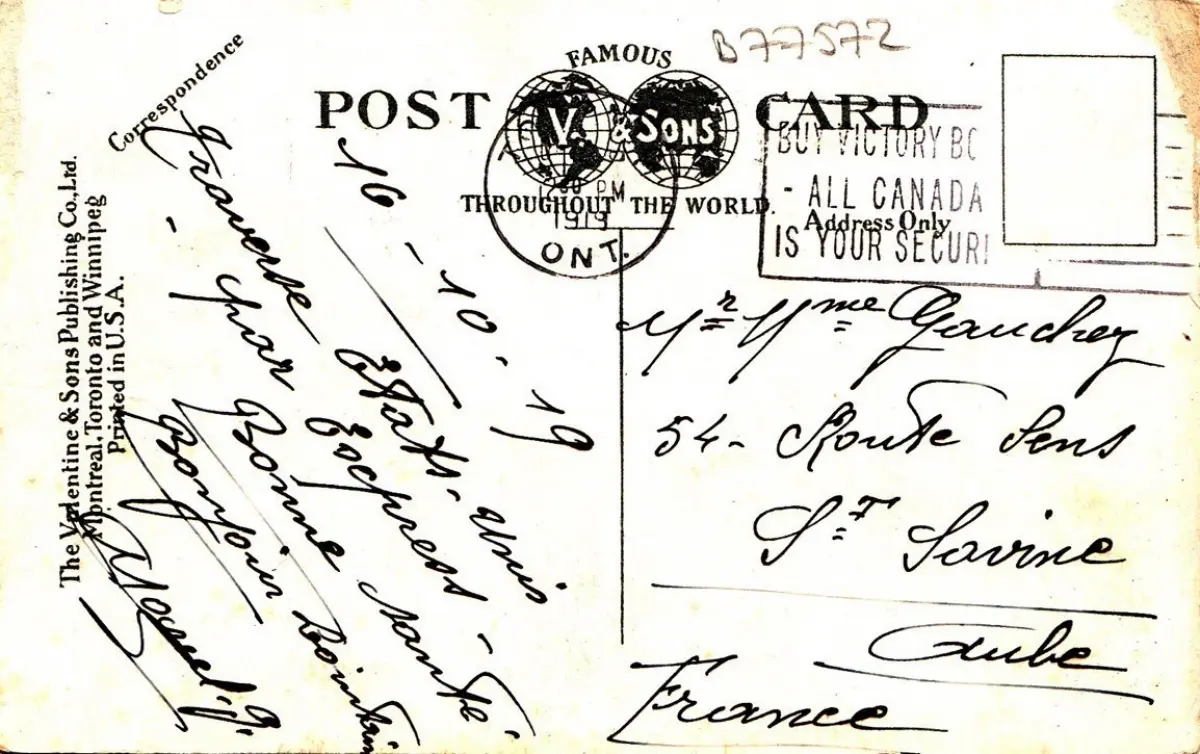 B77572
FAMOUS
POST CARD
V. & SONS
THROUGHOUT THE WORLD.
30 PM
1919
ONT.
BUY VICTORY BO
- ALL CANADA
IS YOUR SECURI
Address Only
Correspondence
The Valentine & Sons Publishing Co., Ltd.
Montreal, Toronto and Winnipeg
Printed in U.S.A.
16 - 10 - 19
Traverse États-Unis
- par Express -
Bonne santé
Bonjour lointain
Mr Mme Gauchez
54 - Route Sens
St Savine
Aube
France